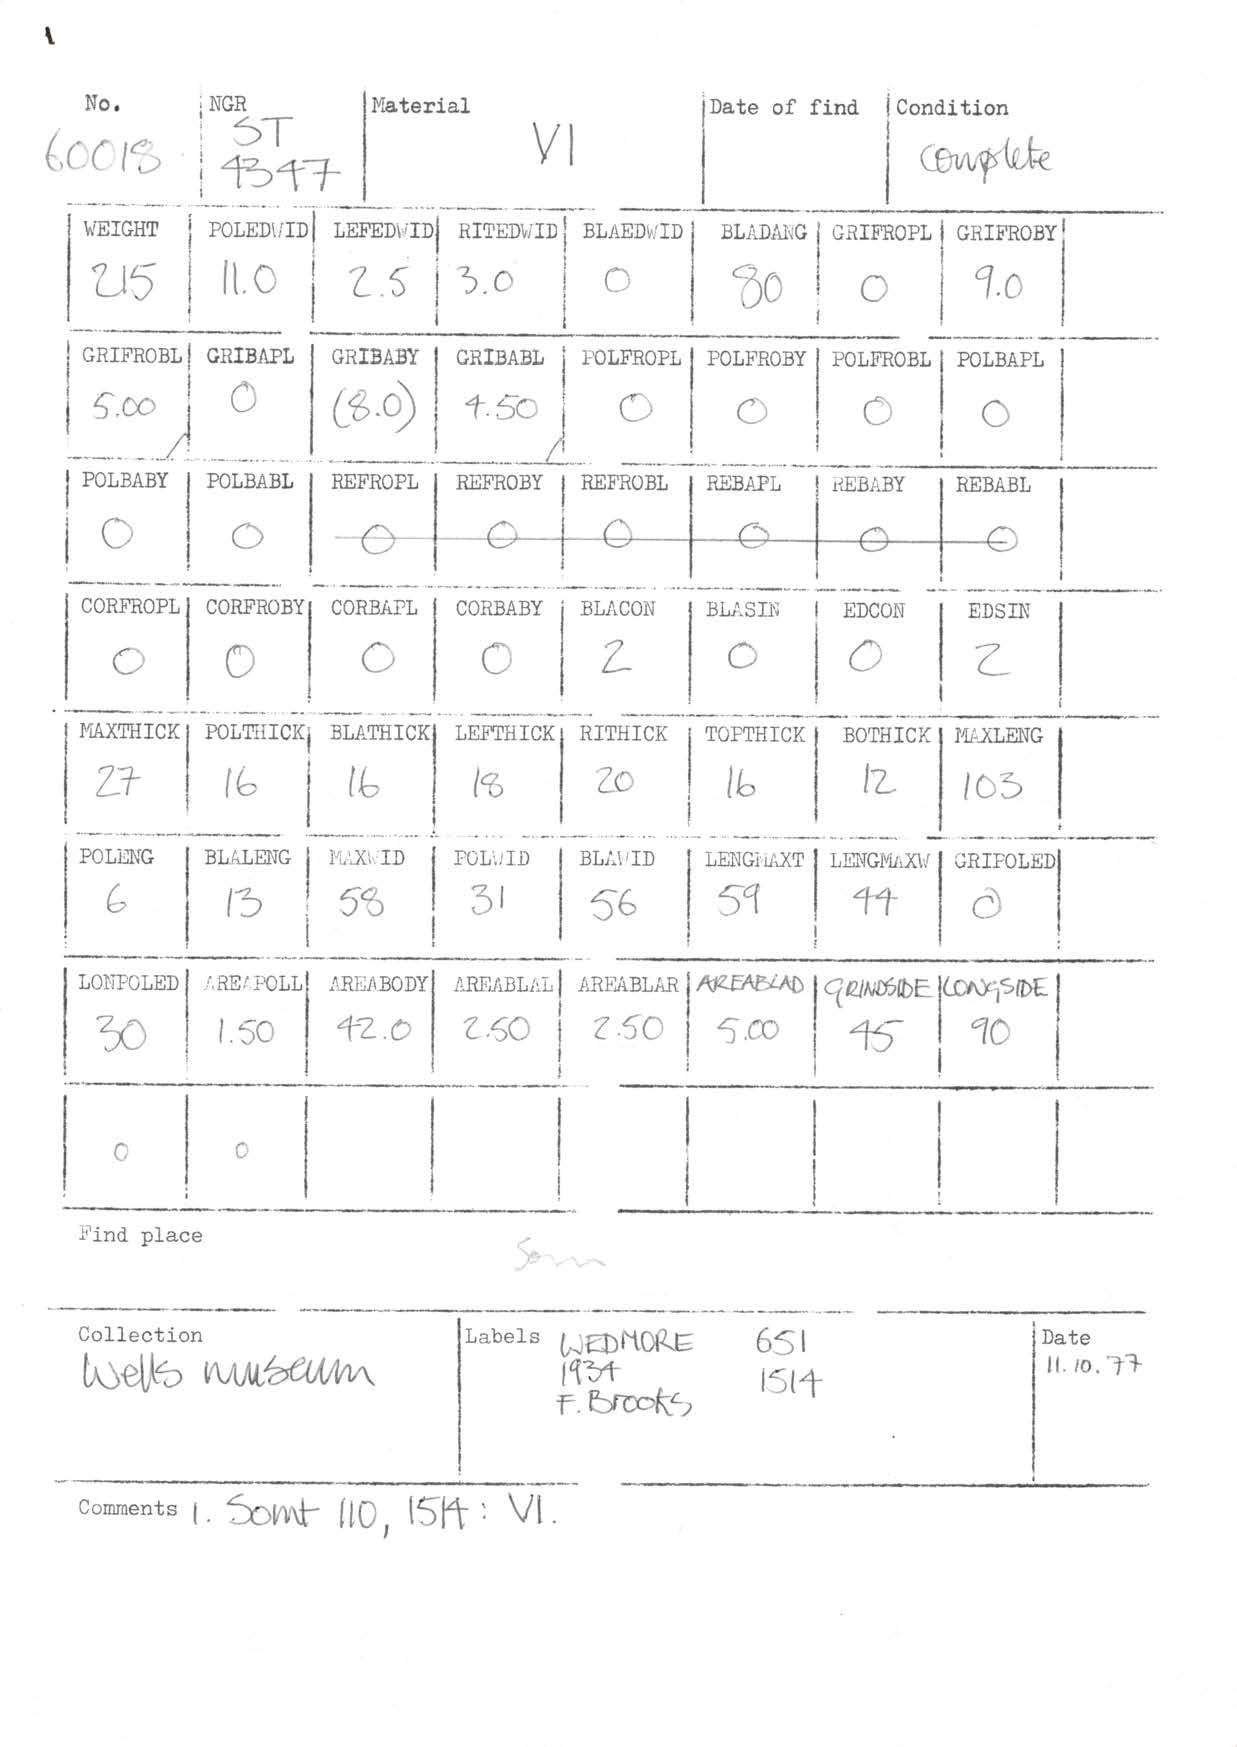 No. NGR Material Date of find Condition
60018 ST 4347 VI complete
WEIGHT POLEDWID LEFEDWID RITEDWID BLAEDWID BLADANG GRIFROPL GRIFROBY
215 11.0 2.5 3.0 0 80 0 9.0
GRIFROBL GRIBAPL GRIBABY GRIBABL POLFROPL POLFROBY POLFROBL POLBAPL
5.00 0 (8.0) 4.50 0 0 0 0
POLBABY POLBABL REFROPL REFROBY REFROBL REBAPL REBABY REBABL
0 0 0 0 0 0 0 0
CORFROPL CORFROBY CORBAPL CORBABY BLACON BLASIN EDCON EDSIN
0 0 0 0 2 0 0 2
MAXTHICK POLTHICK BLATHICK LEFTHICK RITHICK TOPTHICK BOTHICK MAXLENG
27 16 16 18 20 16 12 103
POLENG BLALENG MAXWID POLWID BLAWID LENGMAXT LENGMAXW GRIPOLED
6 13 58 31 56 59 44 0
LONPOLED AREAPOLL AREABODY AREABLAL AREABLAR AREABLAD GRINDSIDE LONGSIDE
30 1.50 42.0 2.50 2.50 5.00 45 90
0 0
Find place
Som
Collection Labels WEDMORE 651 Date
Wells museum 1934 1514 11.10.77
F. Brooks
Comments 1. Somt 110, 1514: VI.